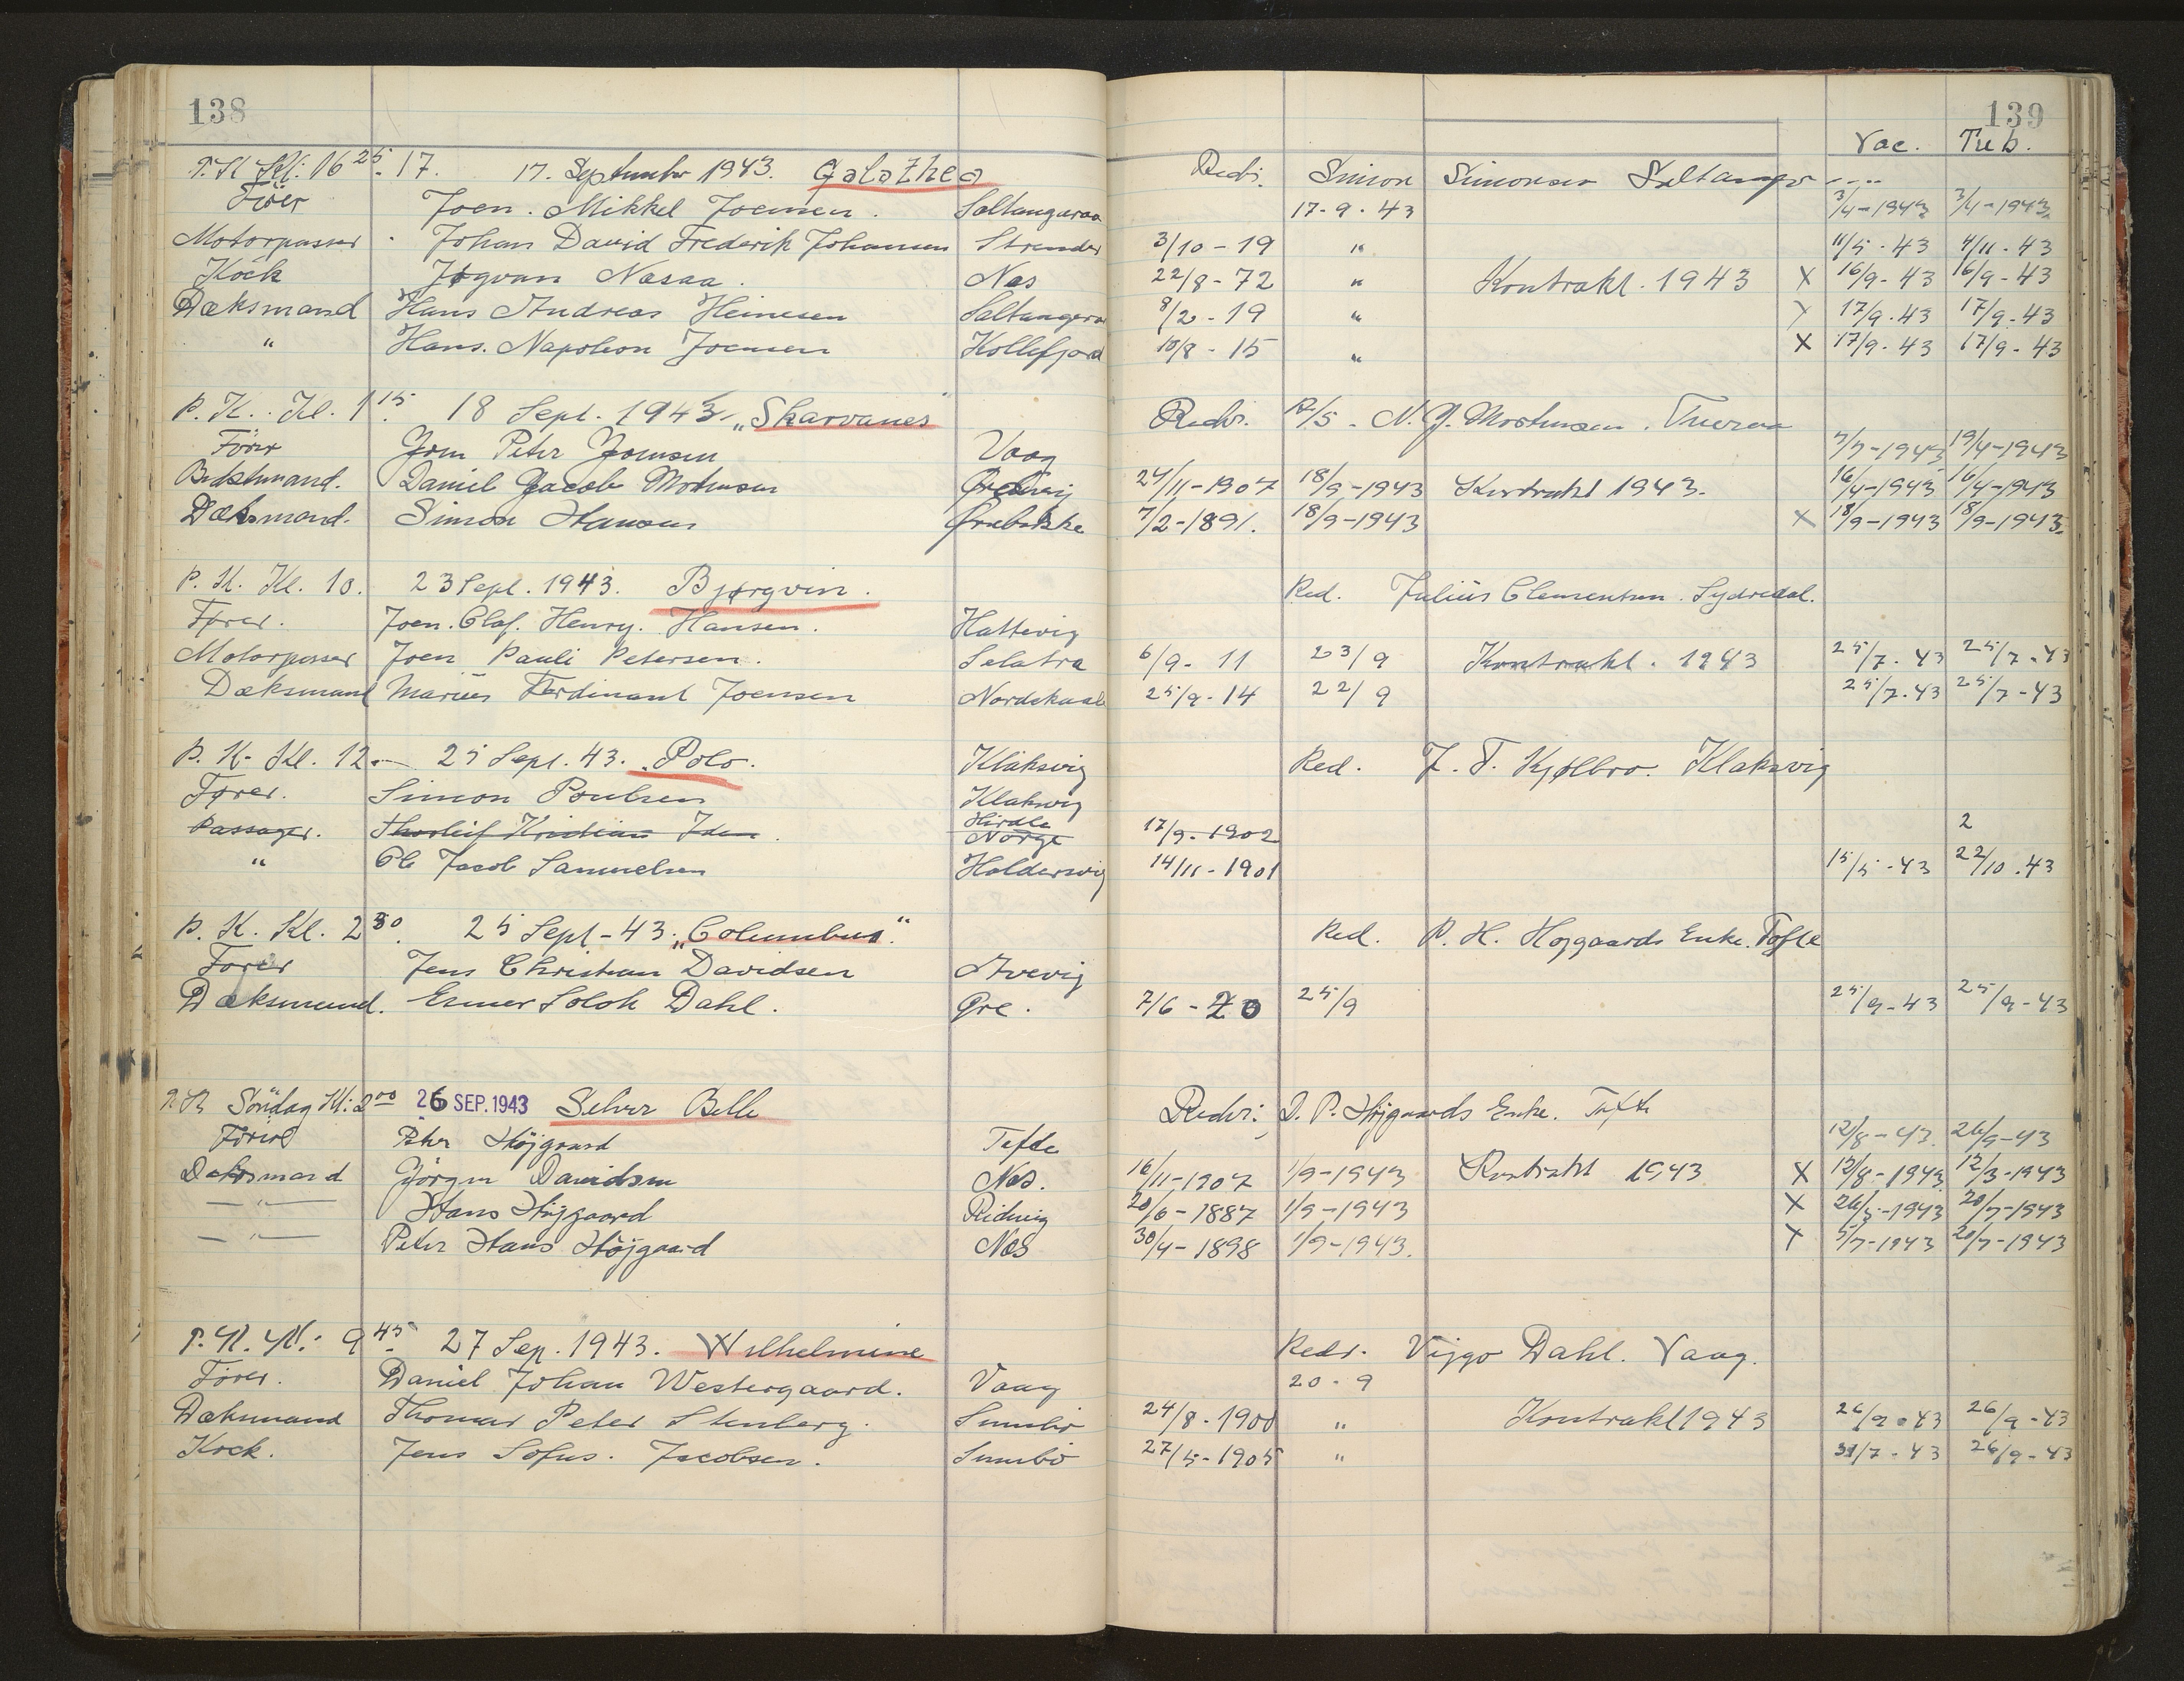 138
139
Vac. Tub.
Kl. 16 25. 17. 17. September 1943. Galathea Redr. Simon Simonsen
Förer Joen. Mikkel Joensen. 17-9-43 3/4-1943 3/4-1943
Motorpasser Johan David Frederik Johansen Strender 3/10-19 " 11/5-43 4/11-43
Kock Jógvan Nasaa. Nes 22/8-72 " Kontrakt. 1943 X 16/9-43 16/9-43
Dæksmand Hans Andreas Heinesen 8/2-19 " 17/9-43 17/9-43
" Hans. Napoleon Joensen Kollefjord 10/8-15 " X 17/9-43 17/9-43
P. K. Kl. 1 15. 18 Sept. 1943 "Skarvanes" Redr. A/S N. J. Mortensen. Tveraa
Förer Peter Joensen Vaag 7/7-1943 19/4-1943
Bedstmand. Daniel Jacob Mortensen 24/11-1907 18/9-1943 Kontrakt 1943. 16/4-1943 16/4-1943
Dæksmand. Simon Hansen 7/2-1891. 18/9-1943 X 18/9-1943 18/9-1943
P. K. Kl. 10. 23 Sept. 1943. Bjørgvin. Red. Julius Clementsen. Sydredal.
Fører. Joen. Olaf. Henry. Hansen. Hattevig
Motorpasser Joen Pauli Petersen. Selatra 6/9-11 23/9 Kontrakt. 1943 25/7-43 25/7-43
Dæksmand Marius Ferdinant Joensen 25/9-14 22/9 25/7-43 25/7-43
P. K. Kl. 12.- 25 Sept. 43. "Polo. Klaksvig Red. J. F. Kjølbro. Klaksvig
Fører. Simon Poulsen Klaksvig
Passager. Thorleif Kristian Norge 17/9-1902 2
" Ole Jacob Samuelsen Haldersvig 14/11-1901 15/5-43 22/10.43
P. K. Kl. 2 30. 25 Sept-43. "Columbus." Red. P. H. Højgaards Enke. Tofte
Fører Jens Christian Davidsen Arevig
Dæksmand. Esmer Dahl. Øre. 7/6-20 25/9 25/9-43 25/9-43
Söndag Kl: 2 00 26 SEP. 1943 Selver Belle Redr: Højgaards Enke. Tofte
Förer Peter Höjgaard Tofte 12/8-43. 26/9-43
Deksmand Jörgen Davidsen Nes. 16/11-1907 1/9-1943 Kontrakt 1943 X 12/8-1943 12/3-1943
— " — Hans Höjgaard 20/6-1887 1/9-1943 X 26/5-1943 20/7-1943
— " — Peter Hans Höjgaard Nes 30/4-1898 1/9-1943. X 5/7-1943 20/7-1943
P. K. Kl: 9 45. 27 Sep. 1943. Wilhelmine Redr. Viggo Dahl. Vaag.
Förer. Daniel Johan Westergaard. Vaag 20-9
Dæksmand Thomas Peter Stenberg. Sumbö 24/8-1900 " Kontrakt 1943 26/9-43 26/9-43
Kock. Jens Sofus. Jacobsen. Sumbö 27/5-1905 " 31/7-43 26/9-43